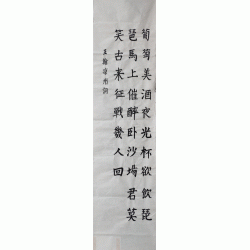 葡萄美酒夜光杯欲飲琵
琶馬上催醉卧沙場君莫
笑古来征戰幾人回
王翰凉州詞